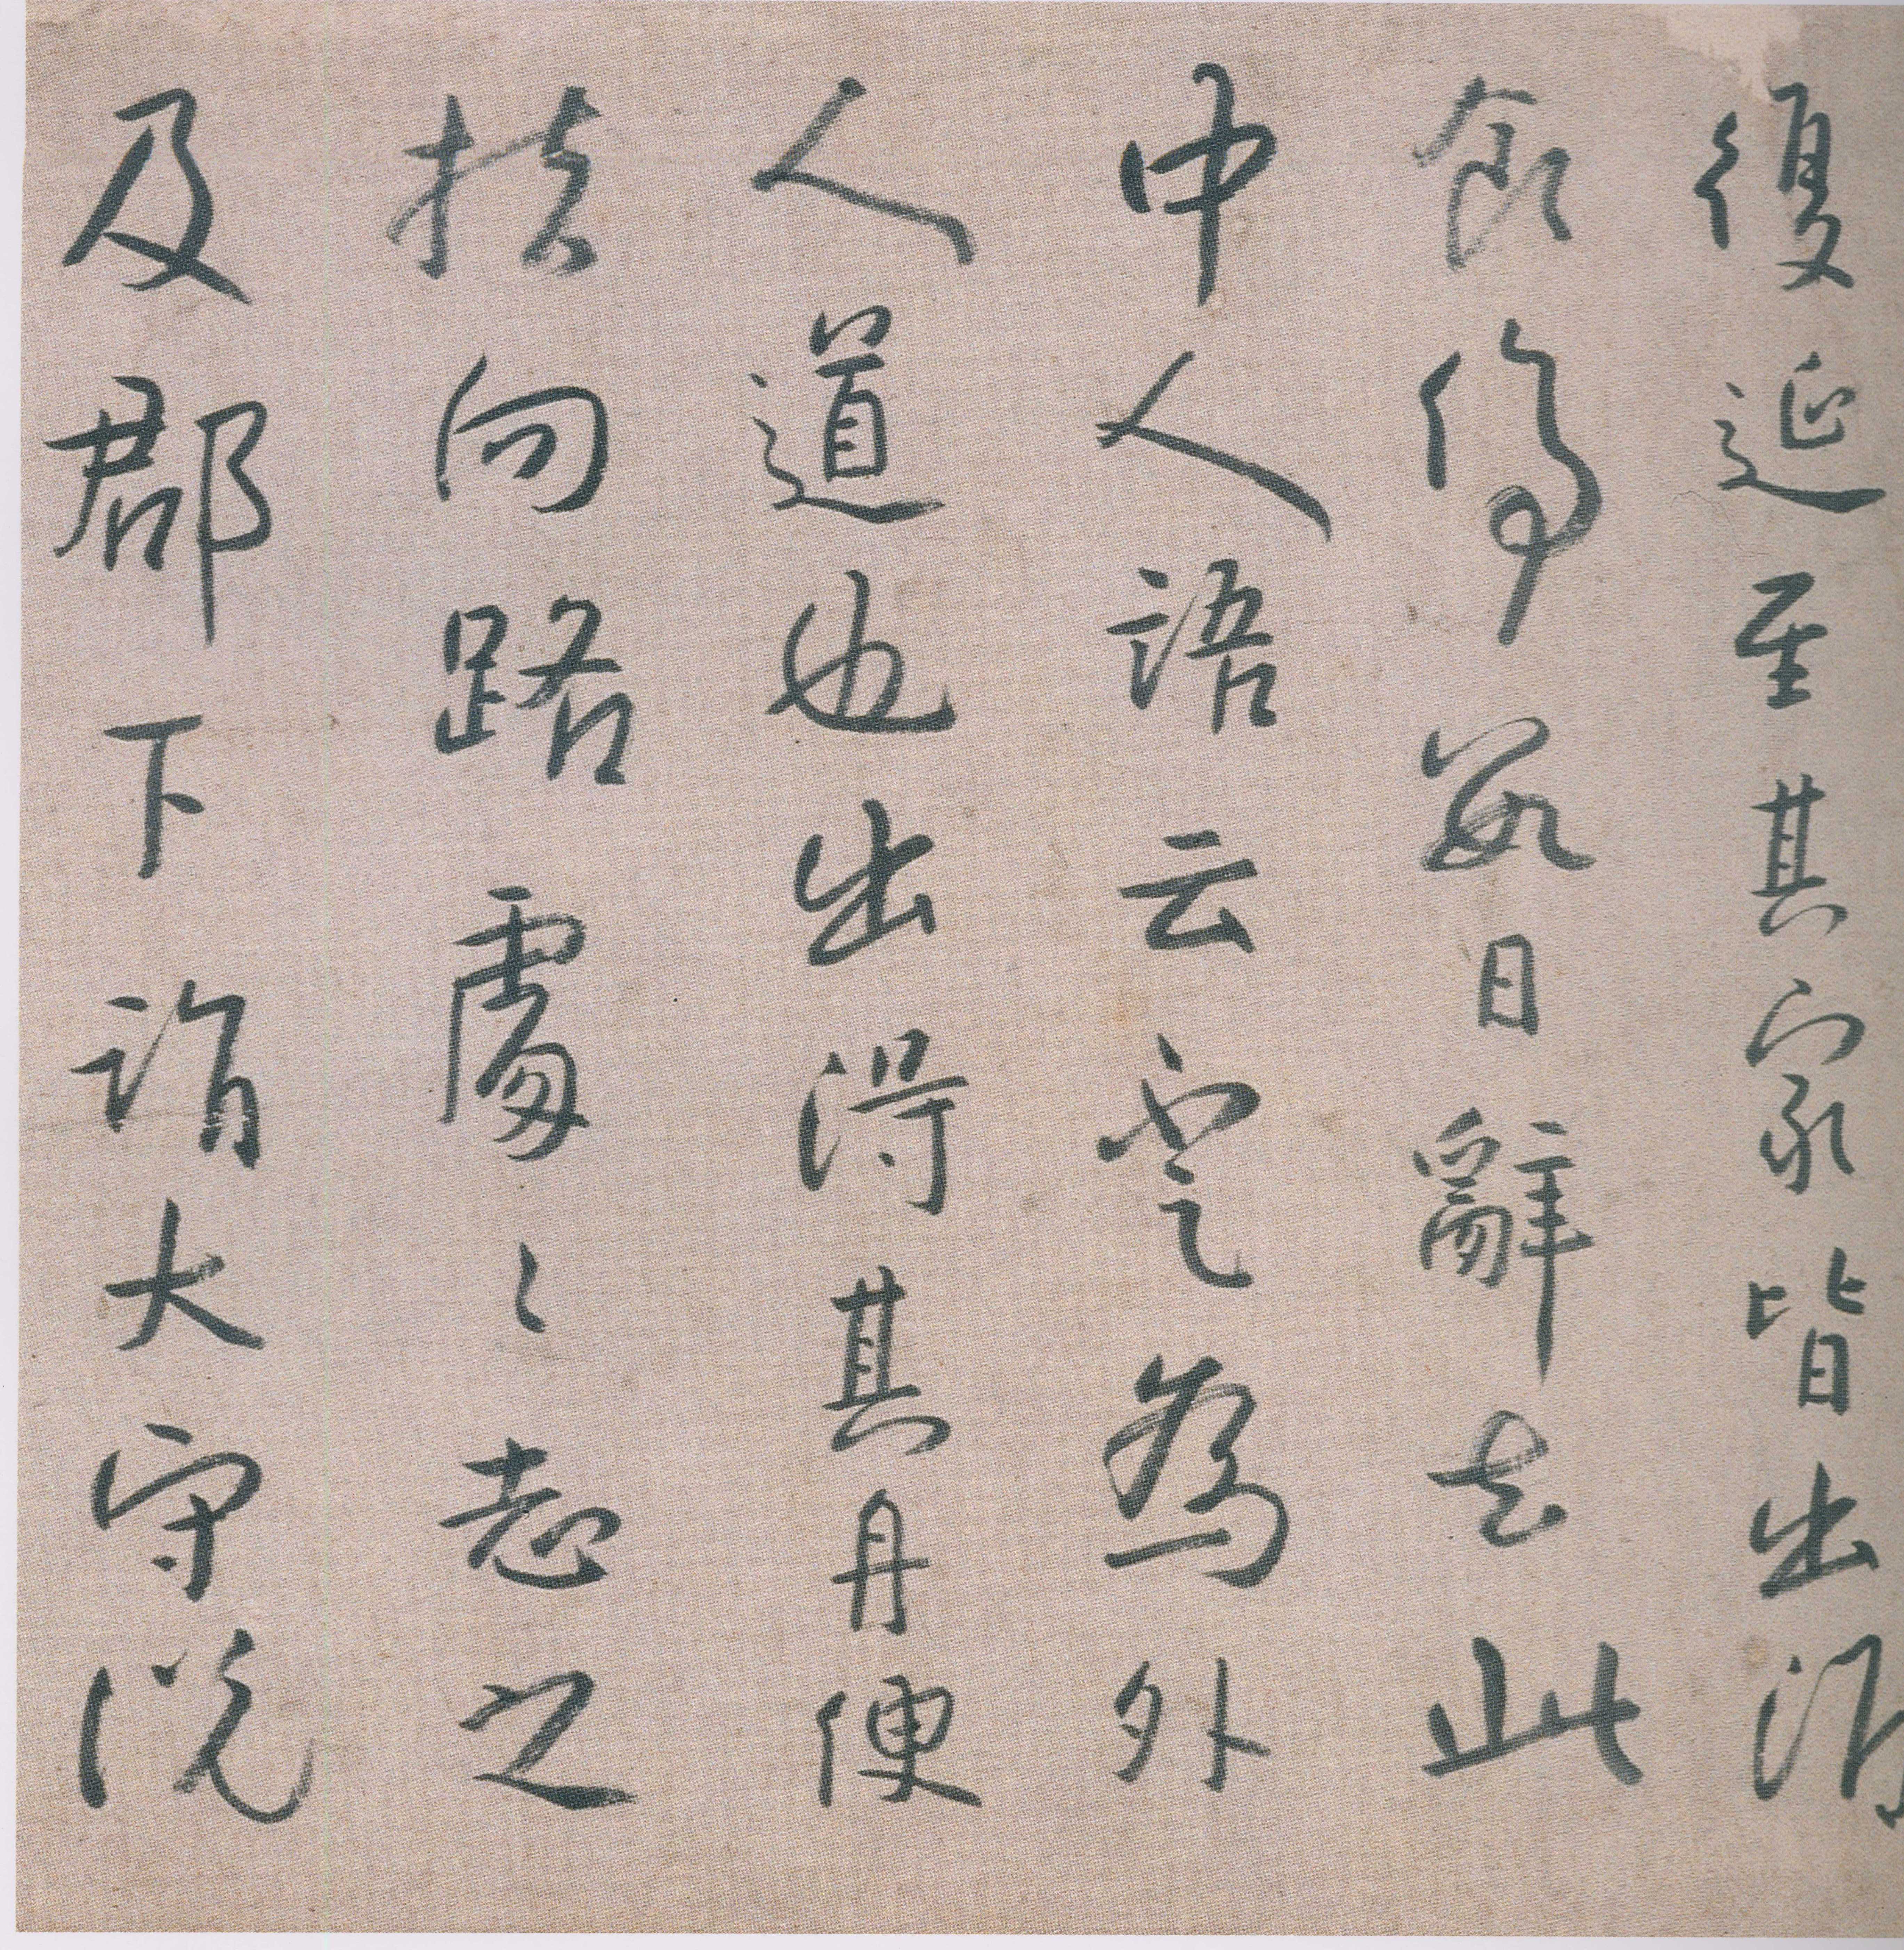 復延至其家皆出酒
食停數日辭去此
中人語云不足為外
人道也出得其舟便
扶向路處〻志之
及郡下詣太守說